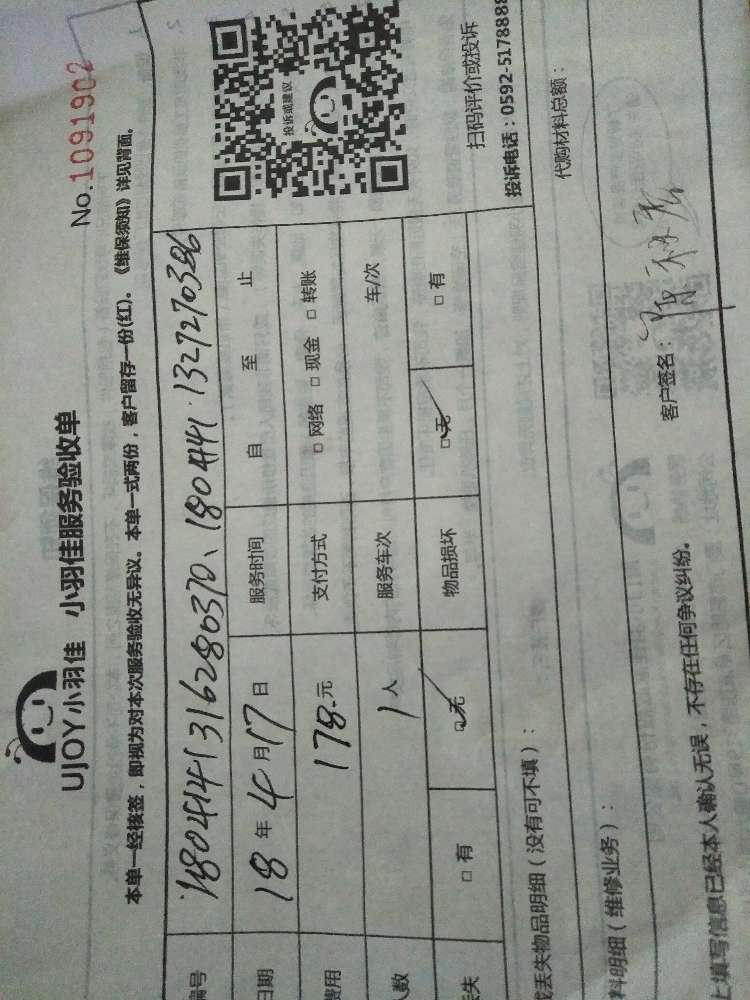 UJOY小羽佳 小羽佳服务验收单
No.1091902
本单一经核签，即视为对本次服务验收无异议。本单一式两份，客户留存一份(红)。《维保须知》详见背面。
编号 1804141316280370、18041411327270386
日期 18年4月17日 服务时间 自 至 止
费用 178.元 支付方式 □网络 □现金 □转账
人数 1人 服务车次 车/次
丢失 □有 □无 物品损坏 □无 □有
投诉或建议
扫码评价或投诉
投诉电话：0592-5178888
或丢失物品明细（没有可不填）：
料明细（维修业务）：
代购材料总额：
上填写信息已经本人确认无误，不存在任何争议纠纷。
客户签名：